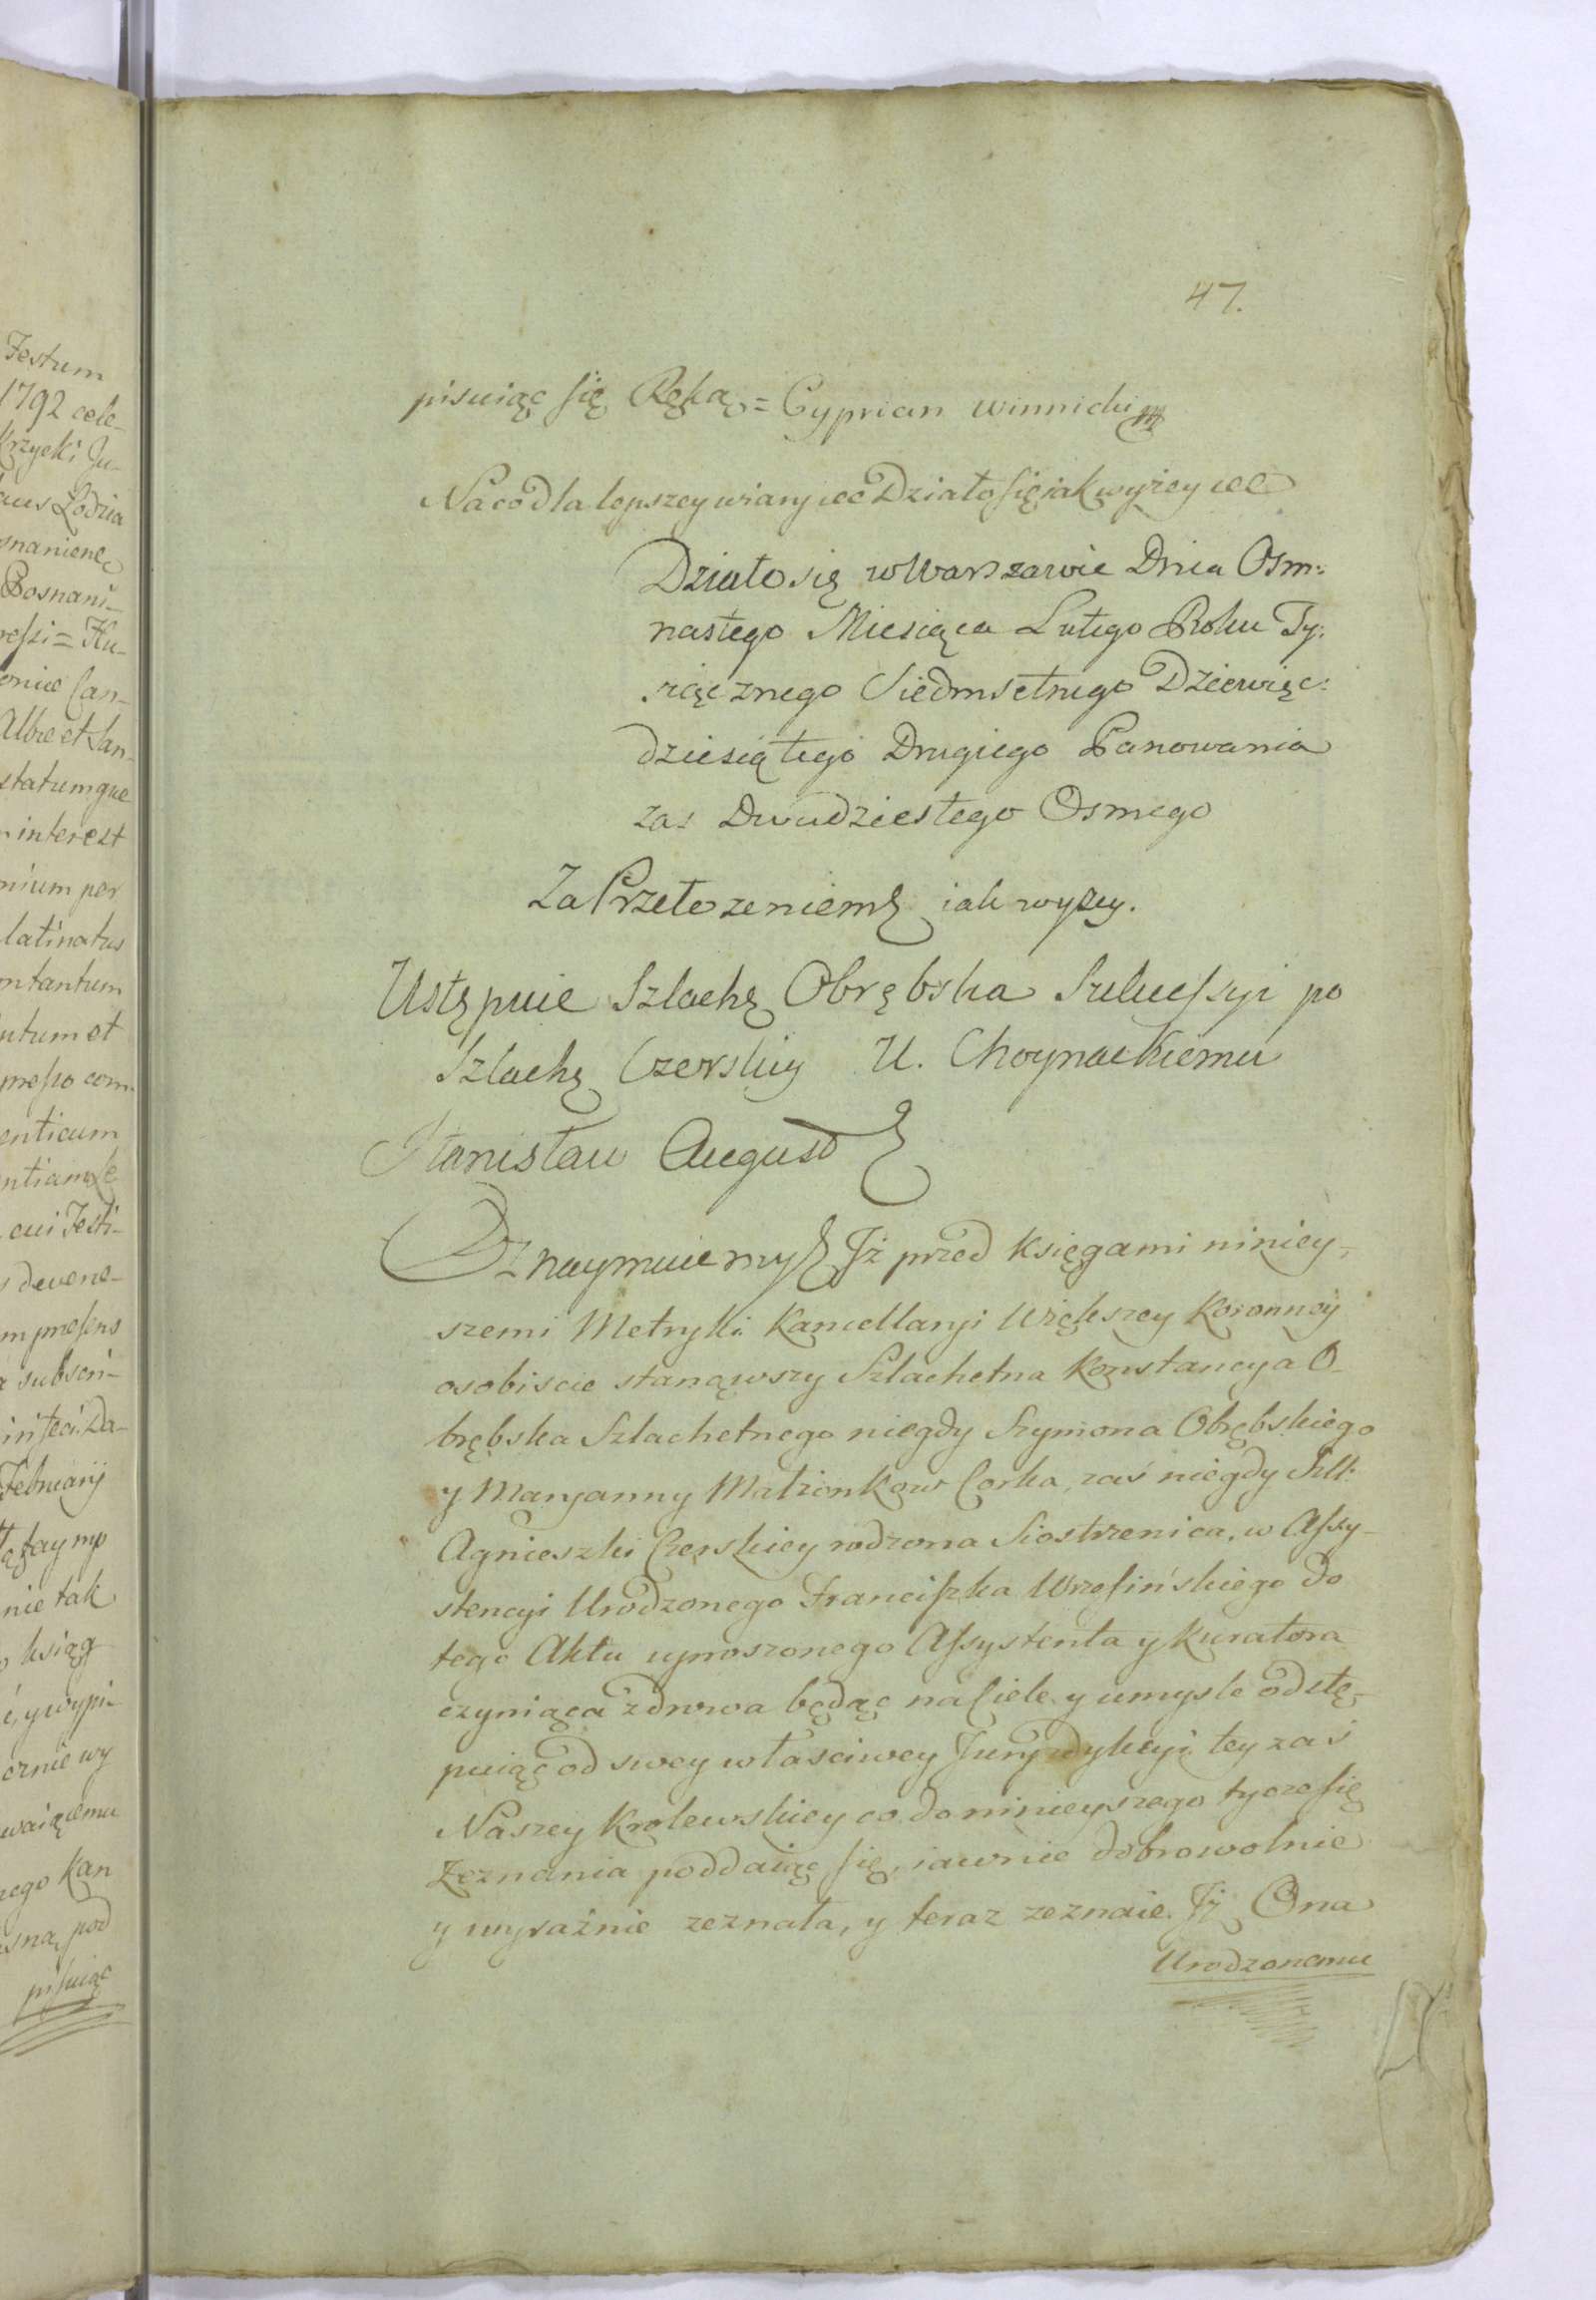 Festum
1792 cele-
Krzycki Ju-
Lodzia
Posnani-
statumque
interest
nium per
latinatus
ntantum
utum et
cui Testi-
devene-
subscri-
Februarij
nie tak
ksiąg
y wypi-
ornie wy
pod
pisuiąc
47.
pisuiąc się Ręką = Cyprian Winnicki mp
Na co dla lepszey wiary etc Działo się iak wyżey etc
Działo się w Warszawie Dnia Osm:
nastego Miesiąca Lutego Roku Ty:
siącznego Siedmsetnego Dziewięc:
dziesiątego Drugiego Panowania
zaś Dwudziestego Osmego
Za Przełożeniem iak wyzey.
Ustępuie Szlachę Obrębska Sukcessyi po
Szlachę Czerskiy U. Choynackiemu
Stanisław August
Oznaymuiemy Iż przed Księgami niniey-
szemi Metryki Kancellaryi Większey Koronney
osobiscie stanąwszy Szlachetna Konstancya O-
brębska Szlachetnego niegdy Szymona Obrębskiego
y Maryanny Małżonkow Corka, zaś niegdy Szll:
Agnieszki Czerskiey rodzona Siostrzenica, w Assy-
stencyi Urodzonego Franciszka Wrzesińskiego do
tego Aktu uproszonego Assystenta y Kuratora
czyniąca zdrowa będąc na Ciele y umysle odstę-
puiąc od swey własciwey Jurysdykcyi tey zaś
Naszey Krolewskiey co do ninieyszego tycze się
Zeznania poddaiąc się, iawnie dobrowolnie
y wyraźnie zeznała, y teraz zeznaie. Iż Ona
Urodzonemu